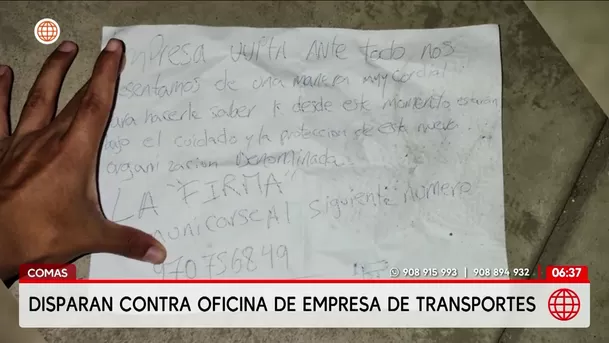 mpresa vvita Ante todo nos
esentamos de una manera muy cordial
para hacerle saber k desde este momento estaran
ajo el cuidado y la proteccion de esta nueva
organizacion Denominada
LA "FIRMA"
municarse Al siguiente numero
970756849
COMAS
908 915 993 | 908 894 932
06:37
DISPARAN CONTRA OFICINA DE EMPRESA DE TRANSPORTES